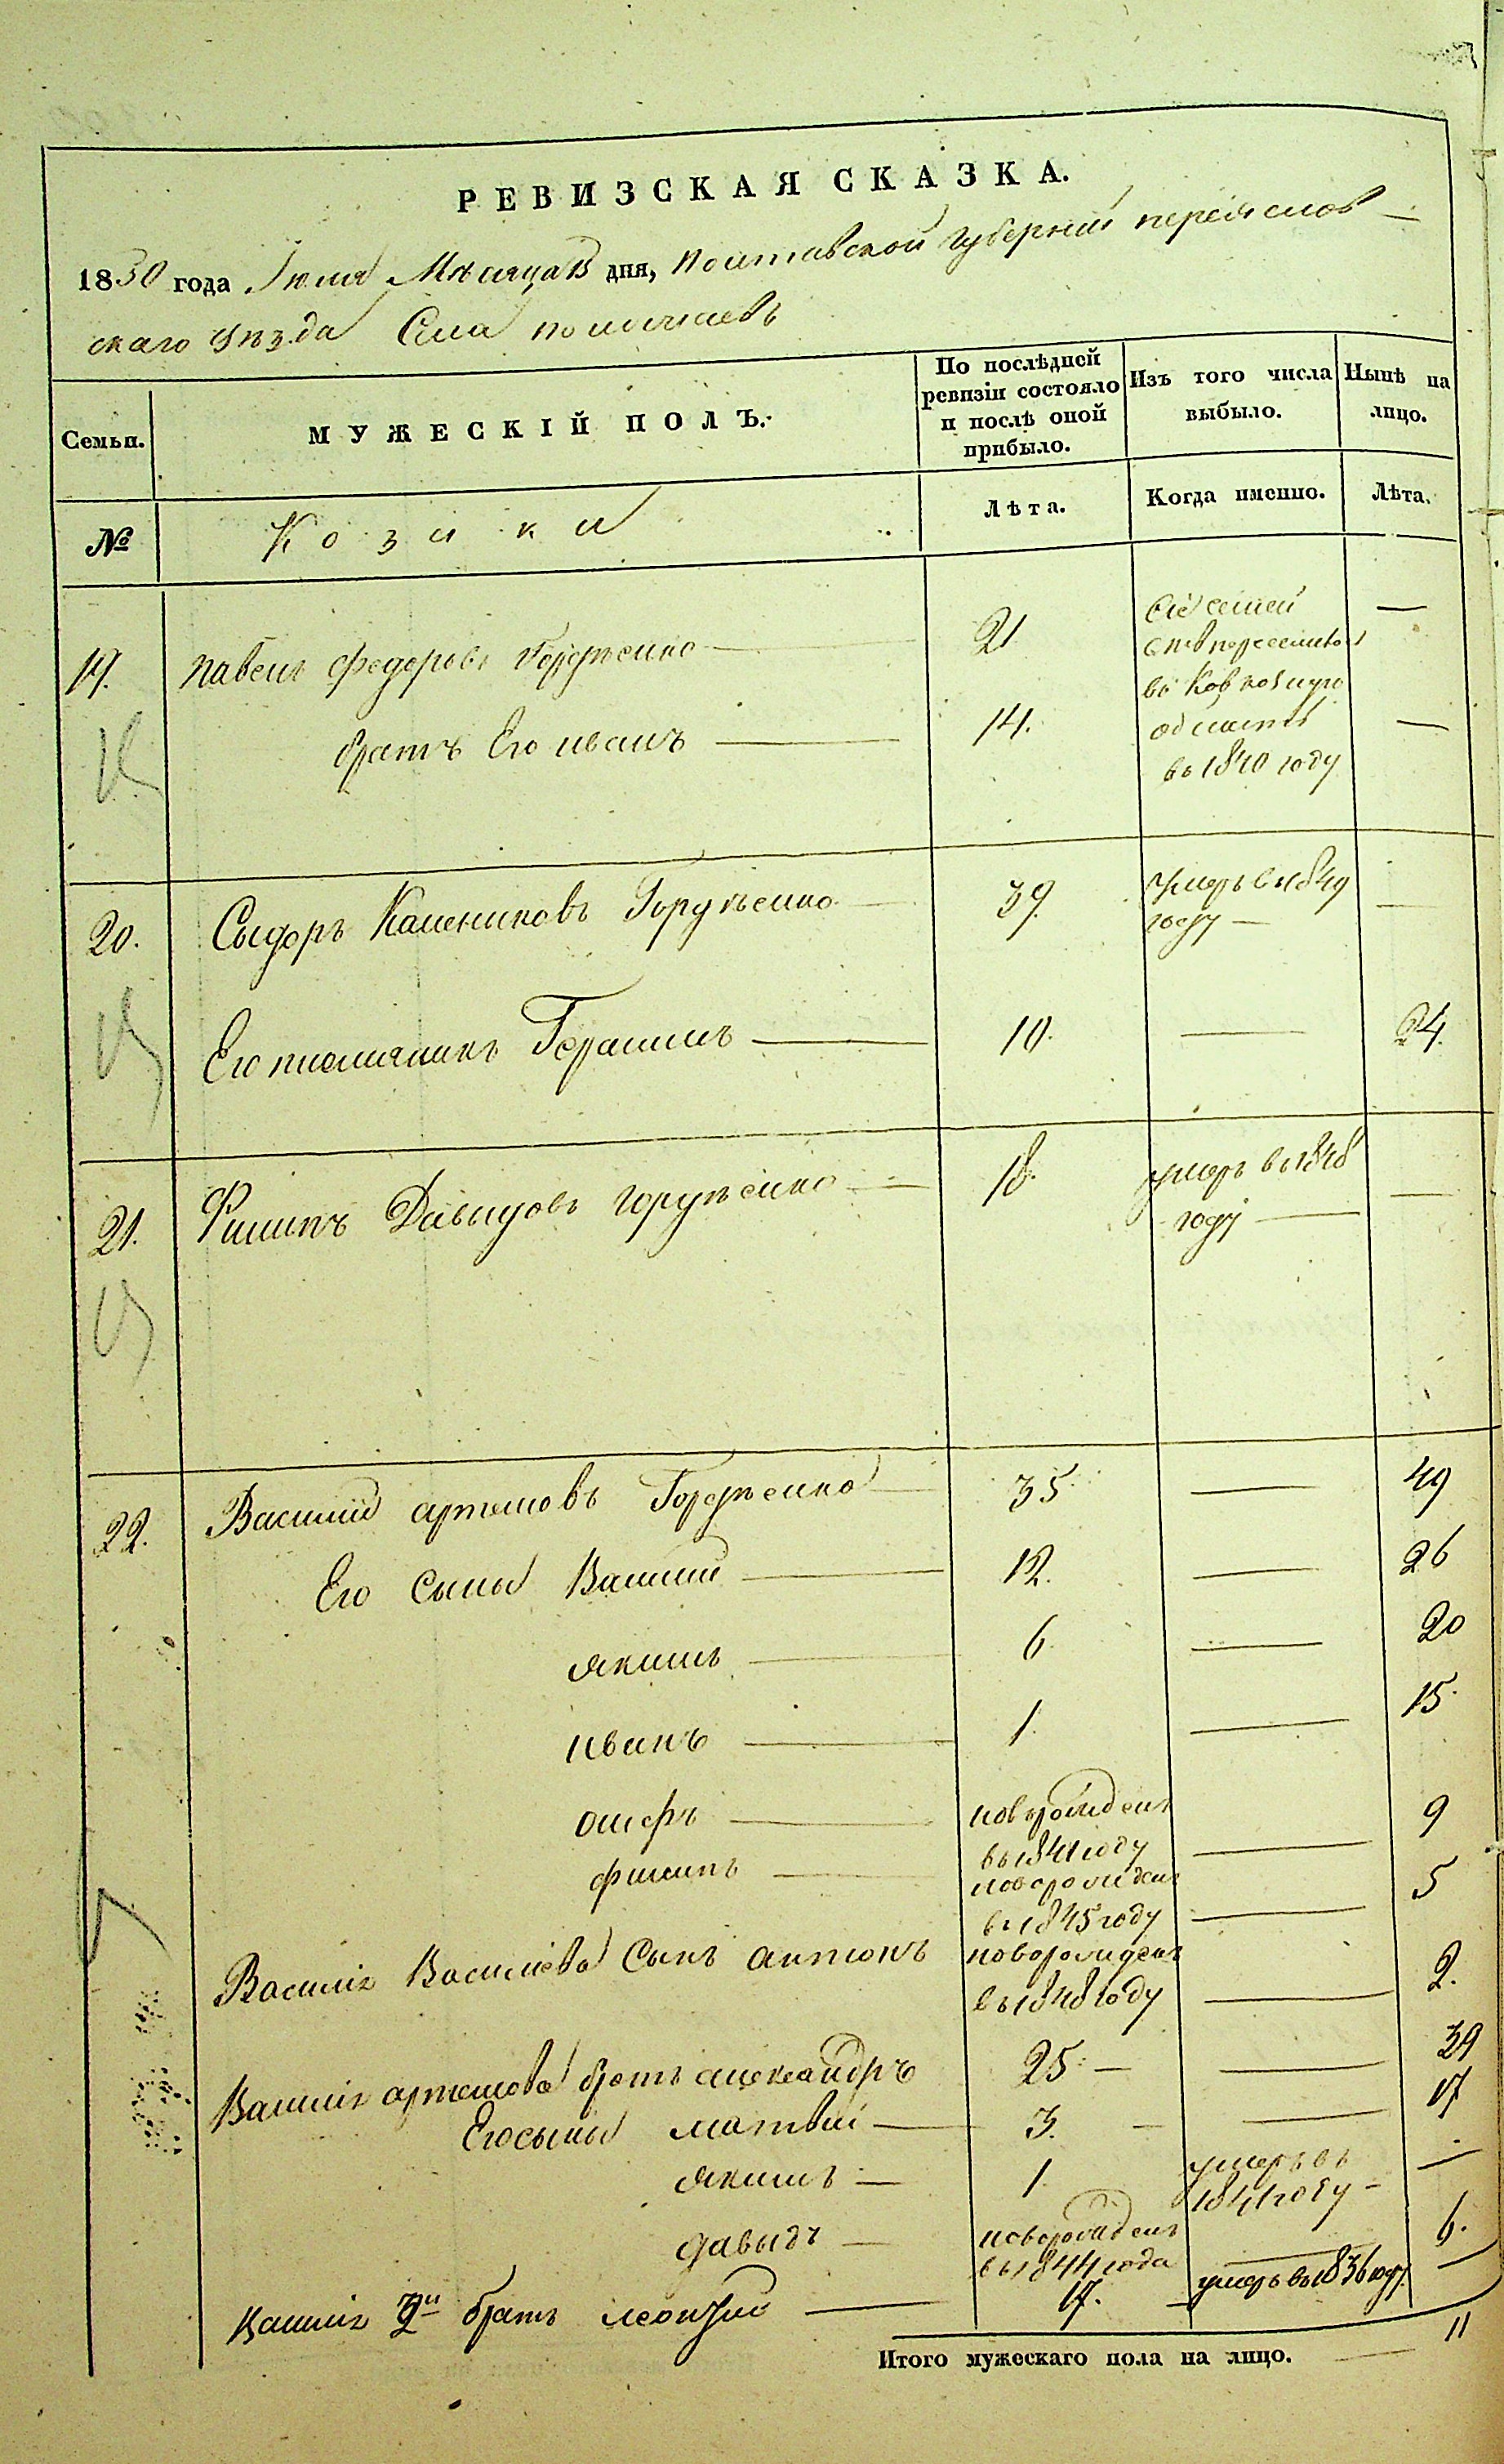 РЕВИЗСКАЯ СКАЗКА.
1850 года Июля Мѣсяца 15 дня, Полтавской Губерніи переяслов-
скаго уѣзда Села
Семьи.
МУЖЕСКІЙ ПОЛЪ.
По послѣдней ревизіи состояло и послѣ оной прибыло.
Изъ того числа выбыло.
Нынѣ на лицо.
№
Козаки
Лѣта.
Когда именно.
Лѣта.
19. павелъ федоровъ 21 —
брать Его иванъ — 14. —
области
въ 1840 году
20. Сыдоръ Каленыковъ 39. умеръ въ 1849 —
году —
Его племяникъ Герасимъ — 10. — 24.
21. Филипъ Давыдовъ — 18. умеръ въ 1848 —
году —
22. Василий артемовъ 35. — 49
Его Сыны Василий — 12. — 26
якимъ — 6. — 20
иванъ — 1. — 15.
осифъ — новорожденъ
въ 1841 году — 9
филипъ — новорожденъ
въ 1845 году — 5
Василія Васильева Сынъ антонъ новорожденъ
въ 1848 году — 2.
Василія артемова братъ александръ 25. — — 39
Его сыны матвій — 3. — — 17
якимъ — 1. умеръ въ —
1841 году —
давыдъ — новорожденъ
въ 1844 года — 6.
Василія 3й братъ леонтий — 17. — умеръ въ 1836 году —
Итого мужескаго пола на лицо. — 11